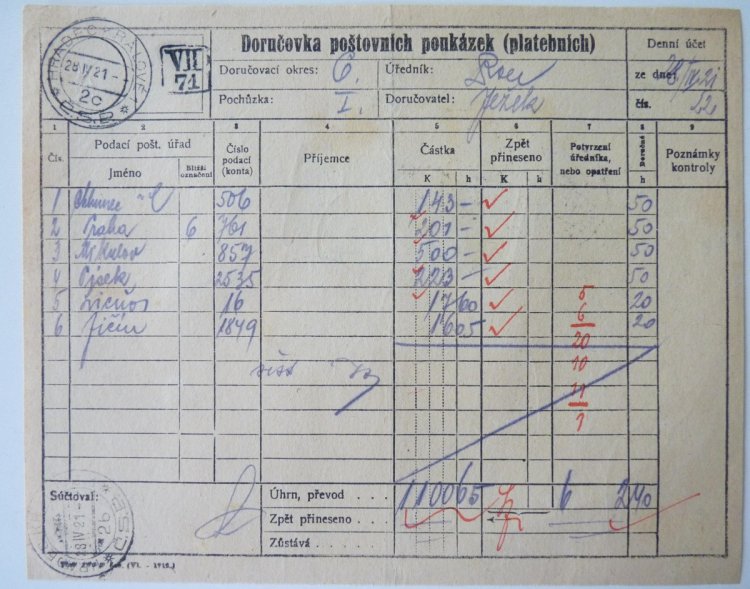 HRADEC KRÁLOVÉ 1
28 IV 21 -
2c
Č.S.P.
VII
71
Doručovka poštovních poukázek (platebních)
Doručovací okres: 6.
Úředník:
Pochůzka: I.
Doručovatel: Ježek
Denní účet
ze dne 28/IV 21
čís. 22
1 2 3 4 5 6 7 8 9
Čís.
Podací pošt. úřad
Jméno
Bližší označení
Číslo podací (konta)
Příjemce
Částka
K h
Zpět přineseno
K h
Potvrzení úředníka, nebo opatření
Doručné
h
Poznámky kontroly
1 Chlumec n/C 506 143 – 50
2 Praha 6 761 201 – 50
3 Mikulov 857 500 – 50
4 Písek 2535 223 – 50
5 16 17 60 20
6 Jičín 1849 16 05 20
5
6
20
10
11
1
Súčtoval:
Úhrn, převod . . . 1100 65 6 2 40
Zpět přineseno . . .
Zůstává . . .
28 IV 21 -
2b
Č.S.P.